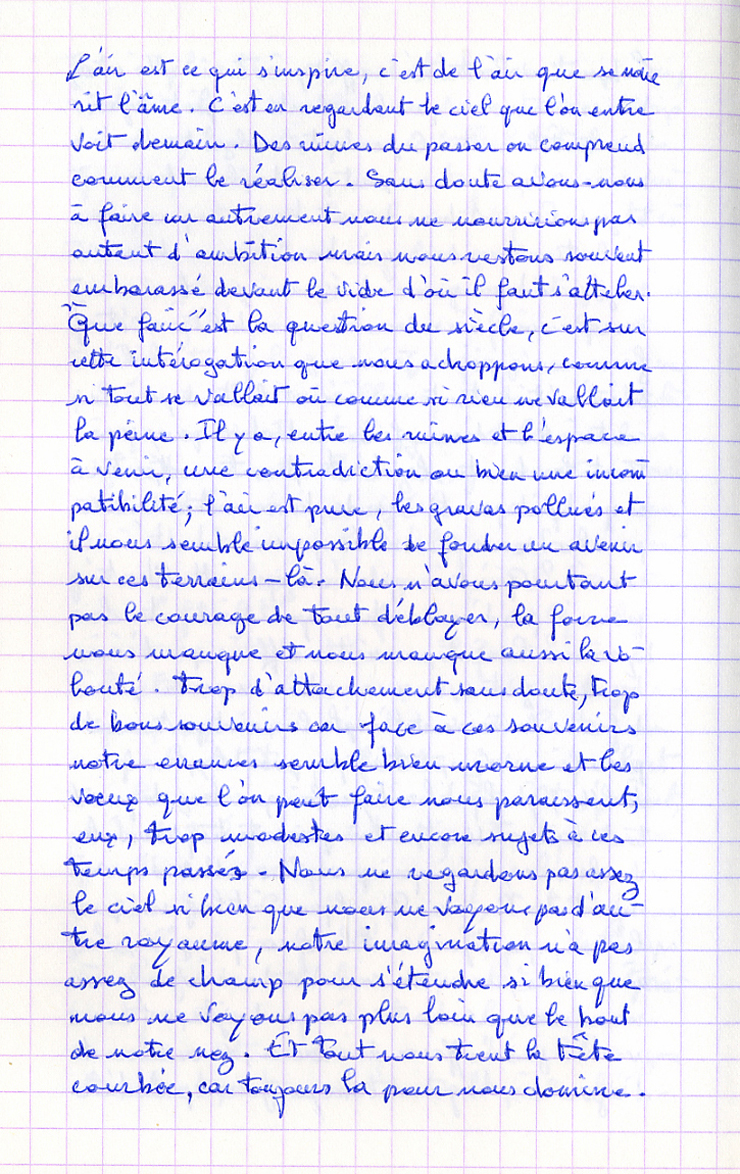 L'air est ce qui s'inspire, c'est de l'air que se nour
rit l'âme. C'est en regardant le ciel que l'on entre
voit demain. Des ruines du passer on comprend
comment le réaliser. Sans doute avons-nous
à faire car autrement nous ne nourririons pas
autant d'ambition mais nous restons souvent
embarassé devant le vide d'où il faut s'atteler.
"Que faire" est la question du siècle, c'est sur
cette intérogation que nous achoppons, comme
si tout se vallait où comme si rien ne vallait
la peine. Il y a, entre les ruines et l'espace
à venir, une contradiction ou bien une incom
patibilité; l'air est pure, les gravas pollués et
il nous semble impossible de fonder un avenir
sur ces terrains-là. Nous n'avons pourtant
pas le courage de tout déblayer, la force
nous manque et nous manque aussi la vo-
lonté. Trop d'attachement sans doute, trop
de bons souvenirs car face à ces souvenirs
notre errances semble bien morne et les
voeux que l'on peut faire nous paraissent,
eux, trop modestes et encore sujets à ces
temps passés. Nous ne regardons pas assez
le ciel si bien que nous ne voyons pas d'au-
tre royaume, notre imagination n'a pas
assez de champ pour s'étendre si bien que
nous ne voyons pas plus loin que le bout
de notre nez. Et tout nous tient la tête
courbée, car toujours la peur nous domine.